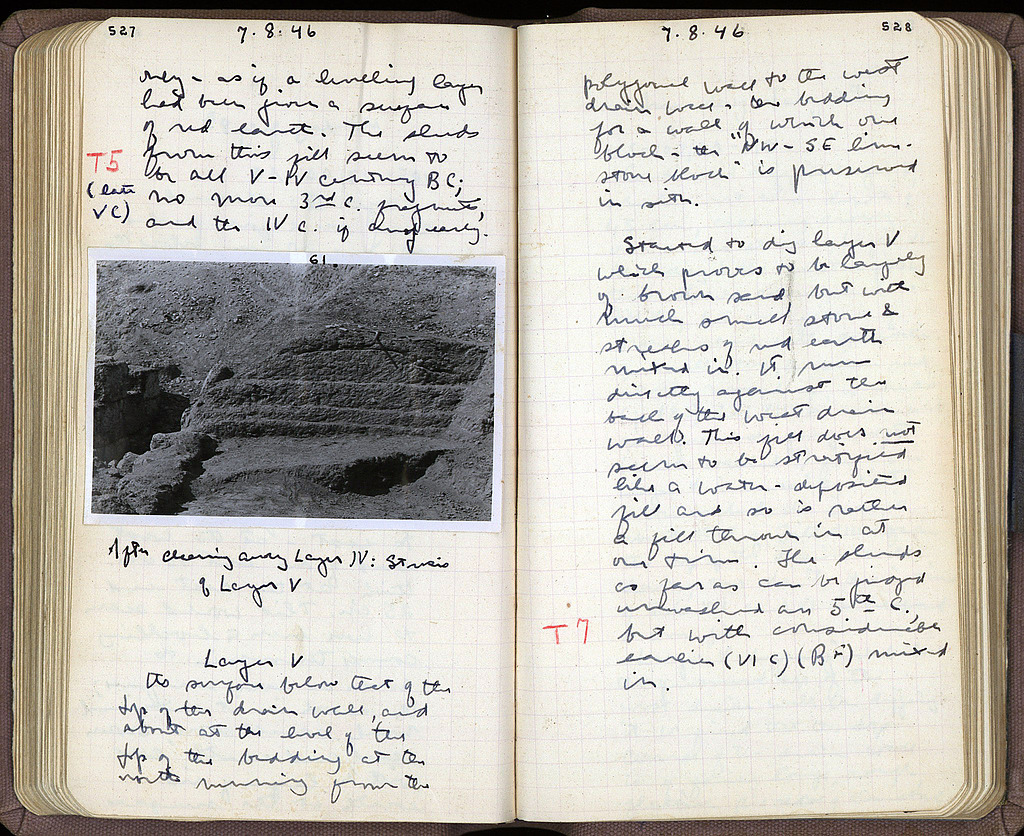 527
7.8.46
only - as if a levelling layer
had been given a surface
of red earth. The sherds
T5
from this fill seem to
be all V-IV century BC;
(late
VC)
no more 3rd c. fragments,
and the IV c. if any early.
61.
After clearing away Layer IV: Stereo
of Layer V
Layer V
Its surface below that of the
top of the drain wall, and
about at the level of the
top of the bedding at the
north running from the
528
7.8.46
polygonal wall to the west
drain wall - the bedding
for a wall of which one
block - the "NW-SE lime-
stone block" is preserved
in situ.
Started to dig layer V
which proves to be largely
of brown sand but with
much small stone &
streaks of red earth
mixed in. It runs
directly against the
back of the west drain
wall. This fill does not
seem to be stratified
like a water-deposited
fill and so is rather
a fill thrown in at
one time. The sherds
as far as can be judged
unwashed are 5th C.,
T7
but with considerable
earlier (VI C) (BF) mixed
in.